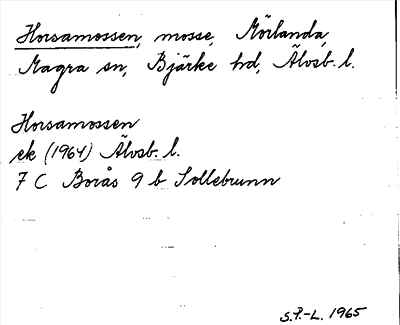 Horsamossen, mosse, Mörlanda,
Magra sn, Bjärke hd, Älvsb. l.
Horsamossen
ek (1964) Älvsb. l.
7 C Borås 9 b Sollebrunn
S.P.-L. 1965